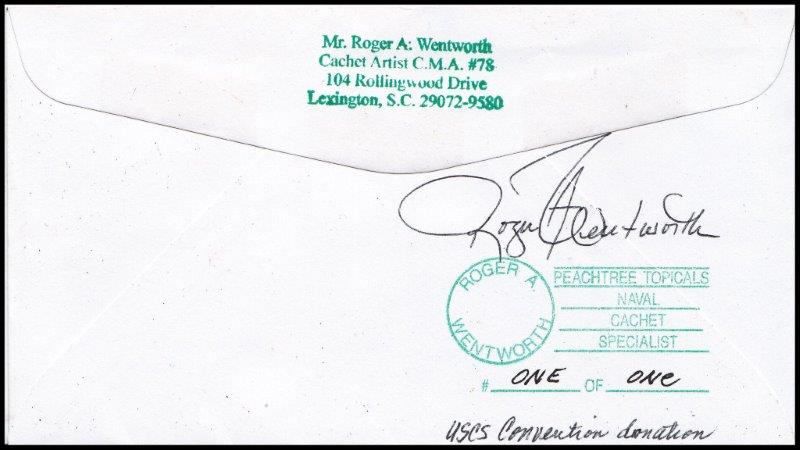 Mr. Roger A. Wentworth
Cachet Artist C.M.A. #78
104 Rollingwood Drive
Lexington, S.C. 29072-9580
Roger A Wentworth
ROGER A. WENTWORTH
PEACHTREE TOPICALS
NAVAL
CACHET
SPECIALIST
# ONE OF ONE
USCS Convention donation